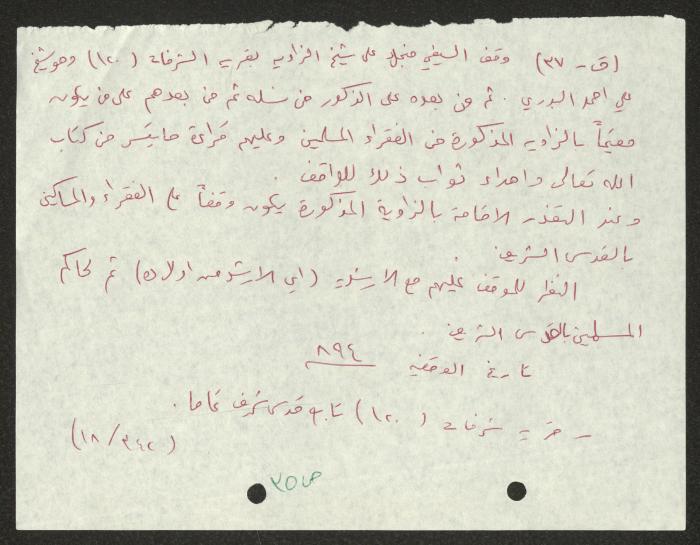 (ق - ٣٧) وقف السيفي منجك على شيخ الزاوية بقرية الشرفات (١٢٠) وهو شيخ
علي احمد البدري . ثم من بعده على الذكور من نسله ثم من بعدهم على من يكون
مقيماً بالزاوية المذكورة من الفقراء المسلمين وعليهم قراءة ما يتيسر من كتاب
الله تعالى واهداء ثواب ذلك للواقف .
وعند التعذر الاقامة بالزاوية المذكورة يكون وقفاً على الفقراء والمساكين
بالقدس الشريف
النظر للموقف عليهم مع الارشدية (اي الارشد من اولاده) ثم لحاكم
المسلمين بالقدس الشريف .
تاريخ الوقفية ٨٩٤
- قرية شرفات (١٢٠) تابع قدس شريف تماما .
(١٨/٣٤٢)
ص ٣٥